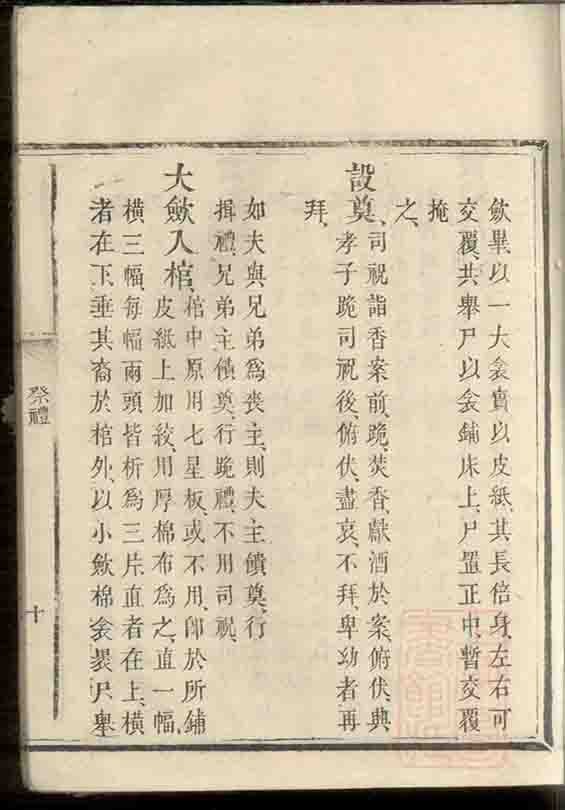 歛畢以一大衾實以皮紙其長倍身左右可
交覆共舉尸以衾鋪床上尸置正中暫交覆
掩
之
設奠司祝詣香案前跪焚香獻酒於案俯伏典
孝子跪司祝後俯伏盡哀不拜卑幼者再
拜
如夫與兄弟爲喪主則夫主饋奠行
揖禮兄弟主饋奠行跪禮不用司祝
大歛入棺棺中原用七星板或不用卽於所鋪
皮紙上加絞用厚棉布爲之直一幅
橫三幅每幅兩頭皆析爲三片直者在上橫
者在下垂其裔於棺外以小歛棉衾裹尸舉
祭禮
十